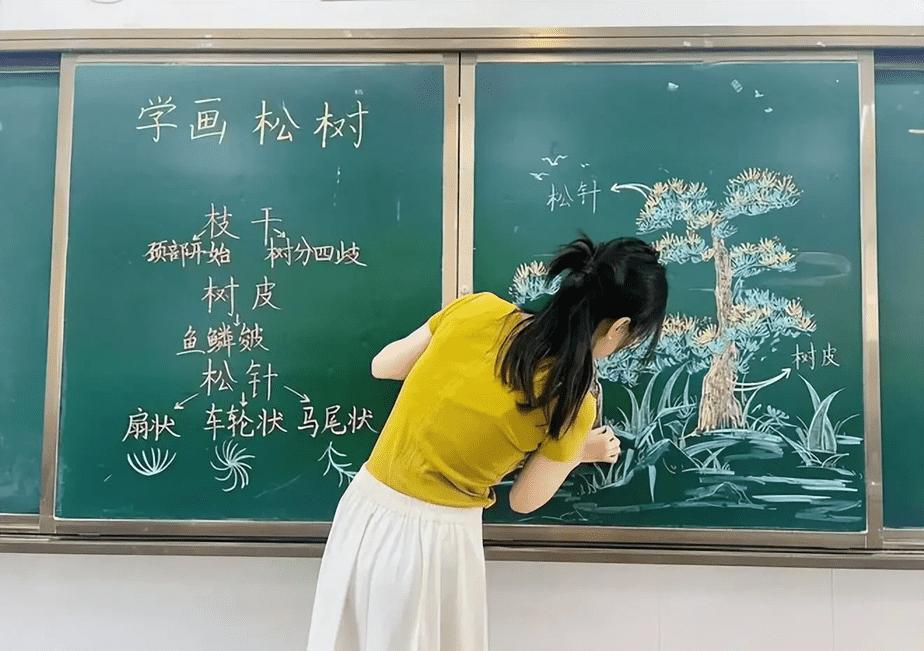 学画松树
枝干
颈部开始 树分四歧
树皮
鱼鳞皴
松针
扇状 车轮状 马尾状
松针
树皮